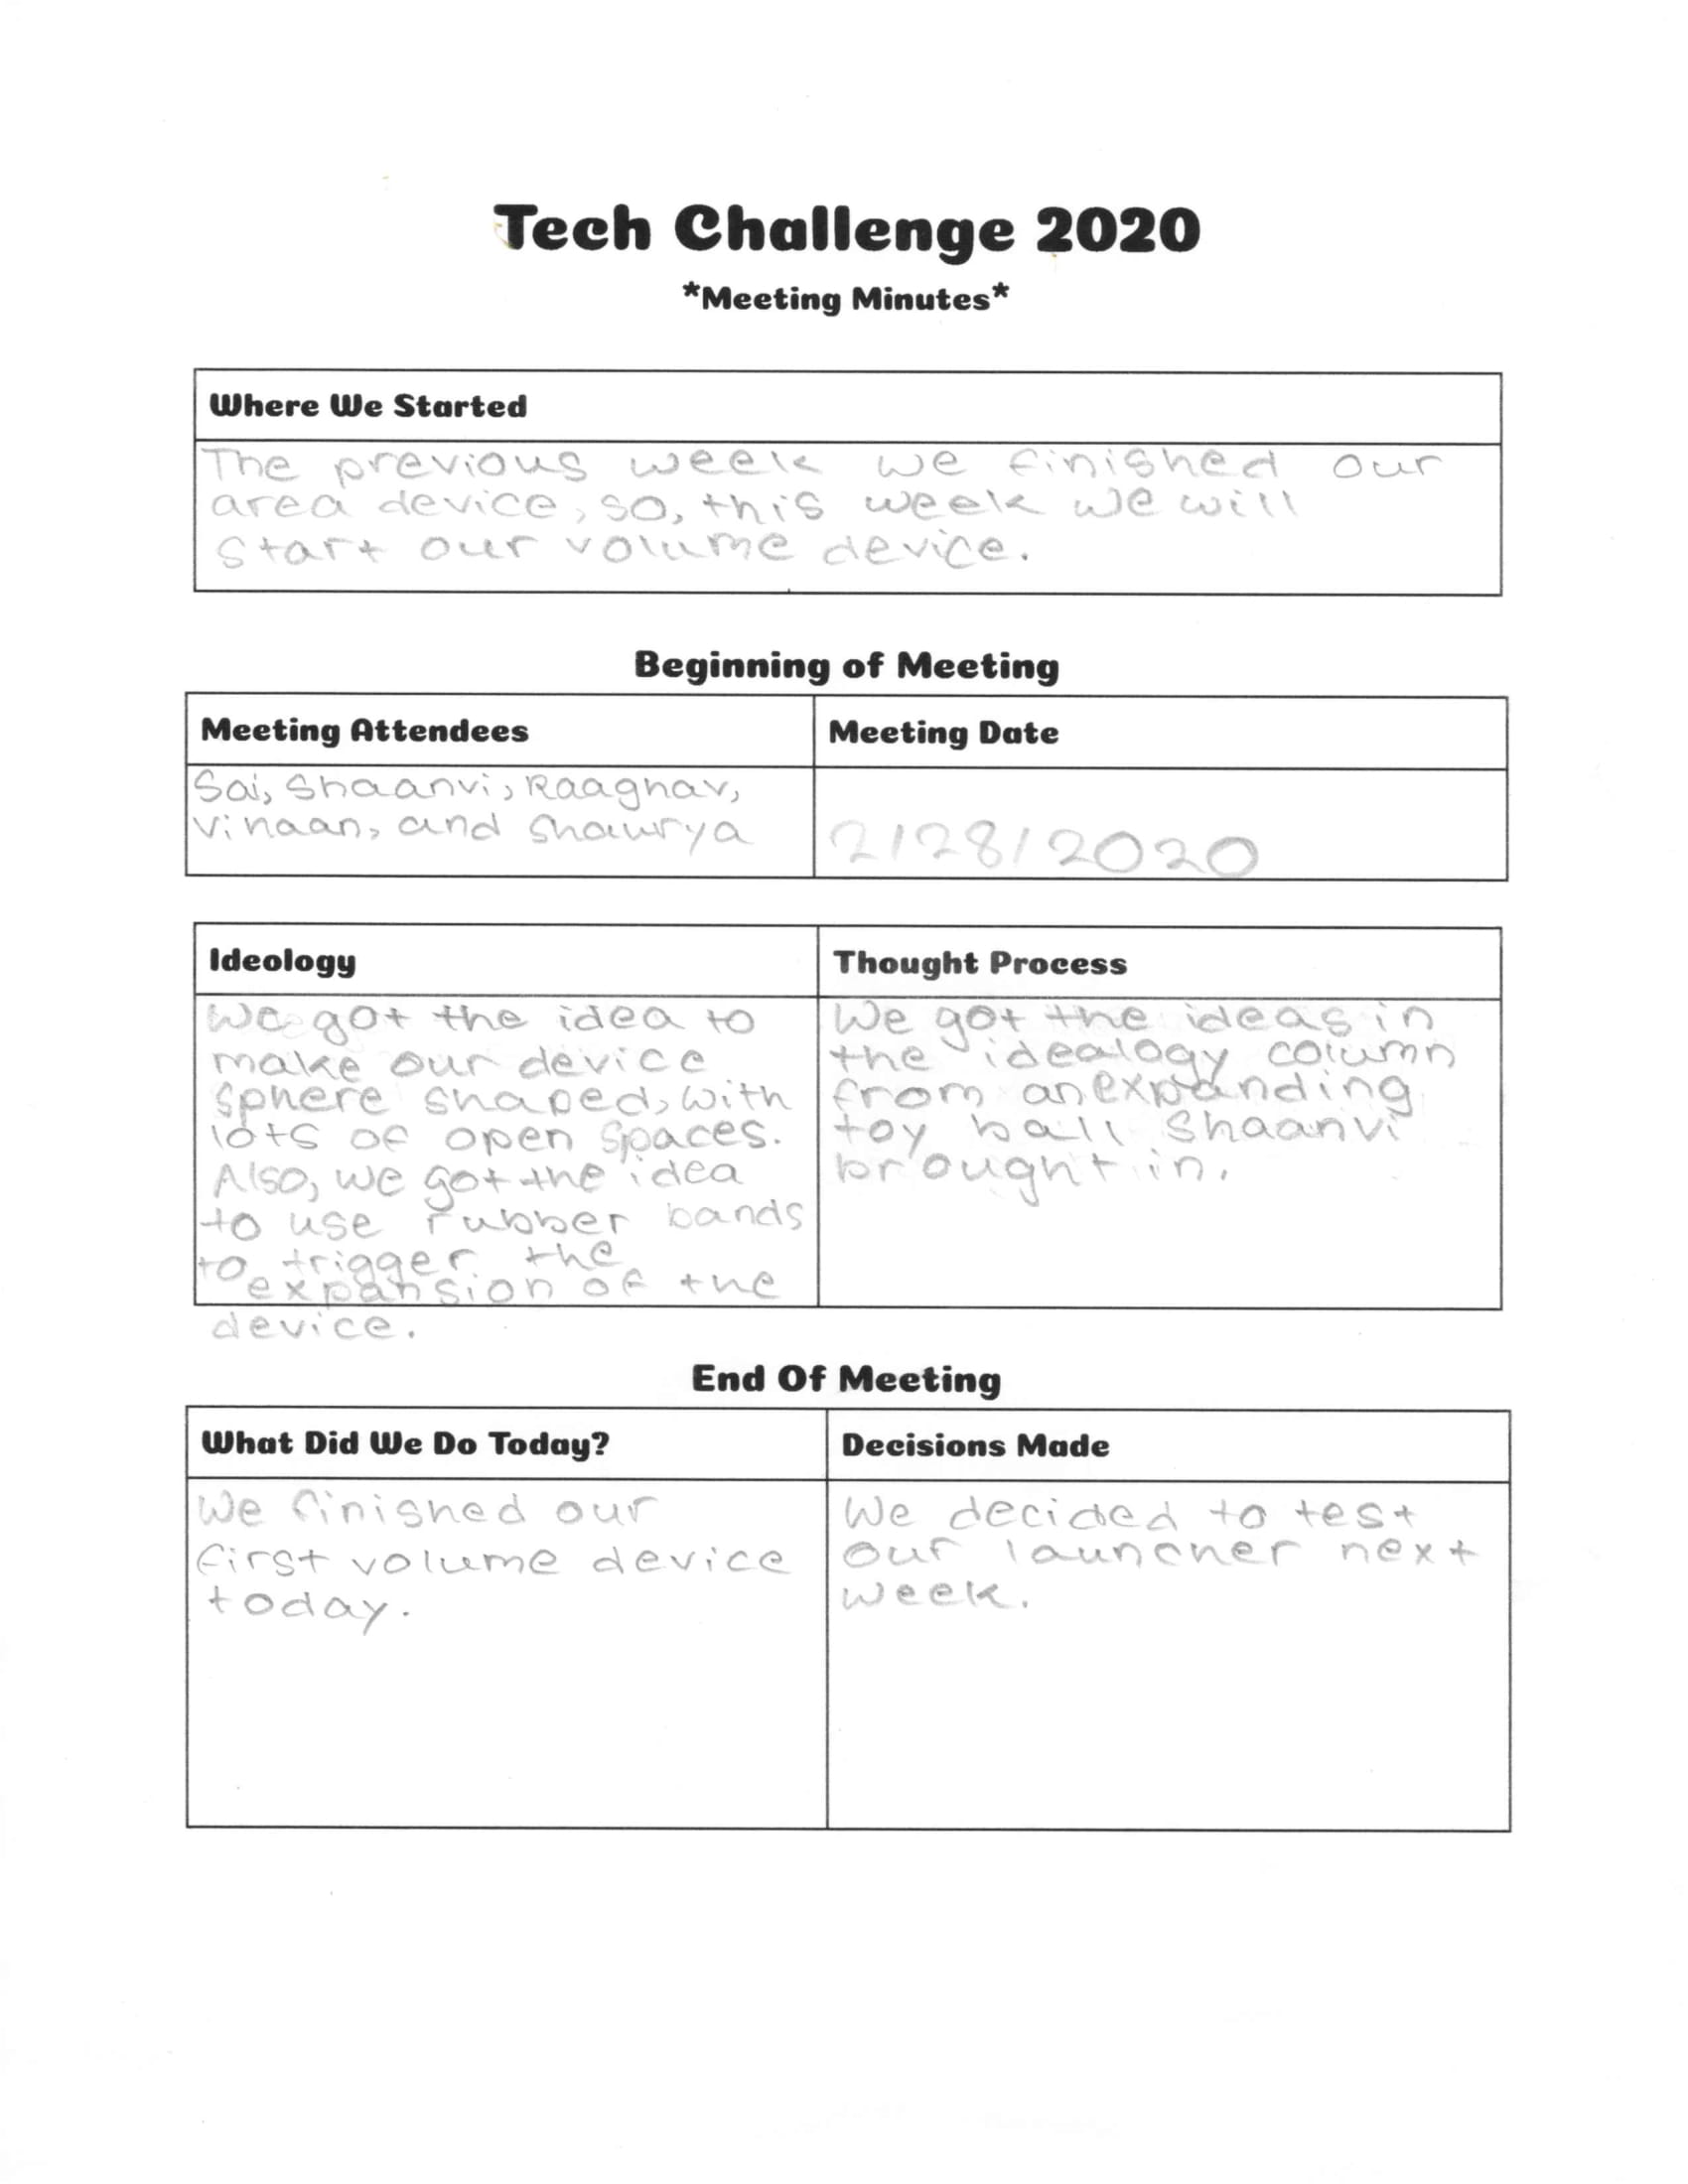 Tech Challenge 2020
*Meeting Minutes*
Where We Started
The previous week we finished our
area device, so, this week we will
start our volume device.
Beginning of Meeting
Meeting Attendees
Meeting Date
Sai, Shaanvi, Raaghav,
Vihaan, and Shaurya
2/28/2020
Ideology
Thought Process
We got the idea to
make our device
sphere shaped, with
lots of open spaces.
Also, we got the idea
to use rubber bands
to trigger the
expansion of the
device.
We got the ideas in
the idealogy column
from an expanding
toy ball Shaanvi
brought in.
End Of Meeting
What Did We Do Today?
Decisions Made
We finished our
first volume device
today.
We decided to test
our launcher next
week.